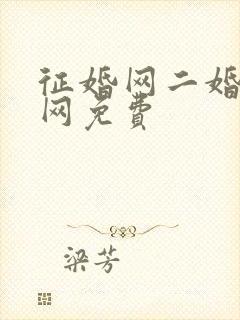 征婚网二婚
网免费
梁芳